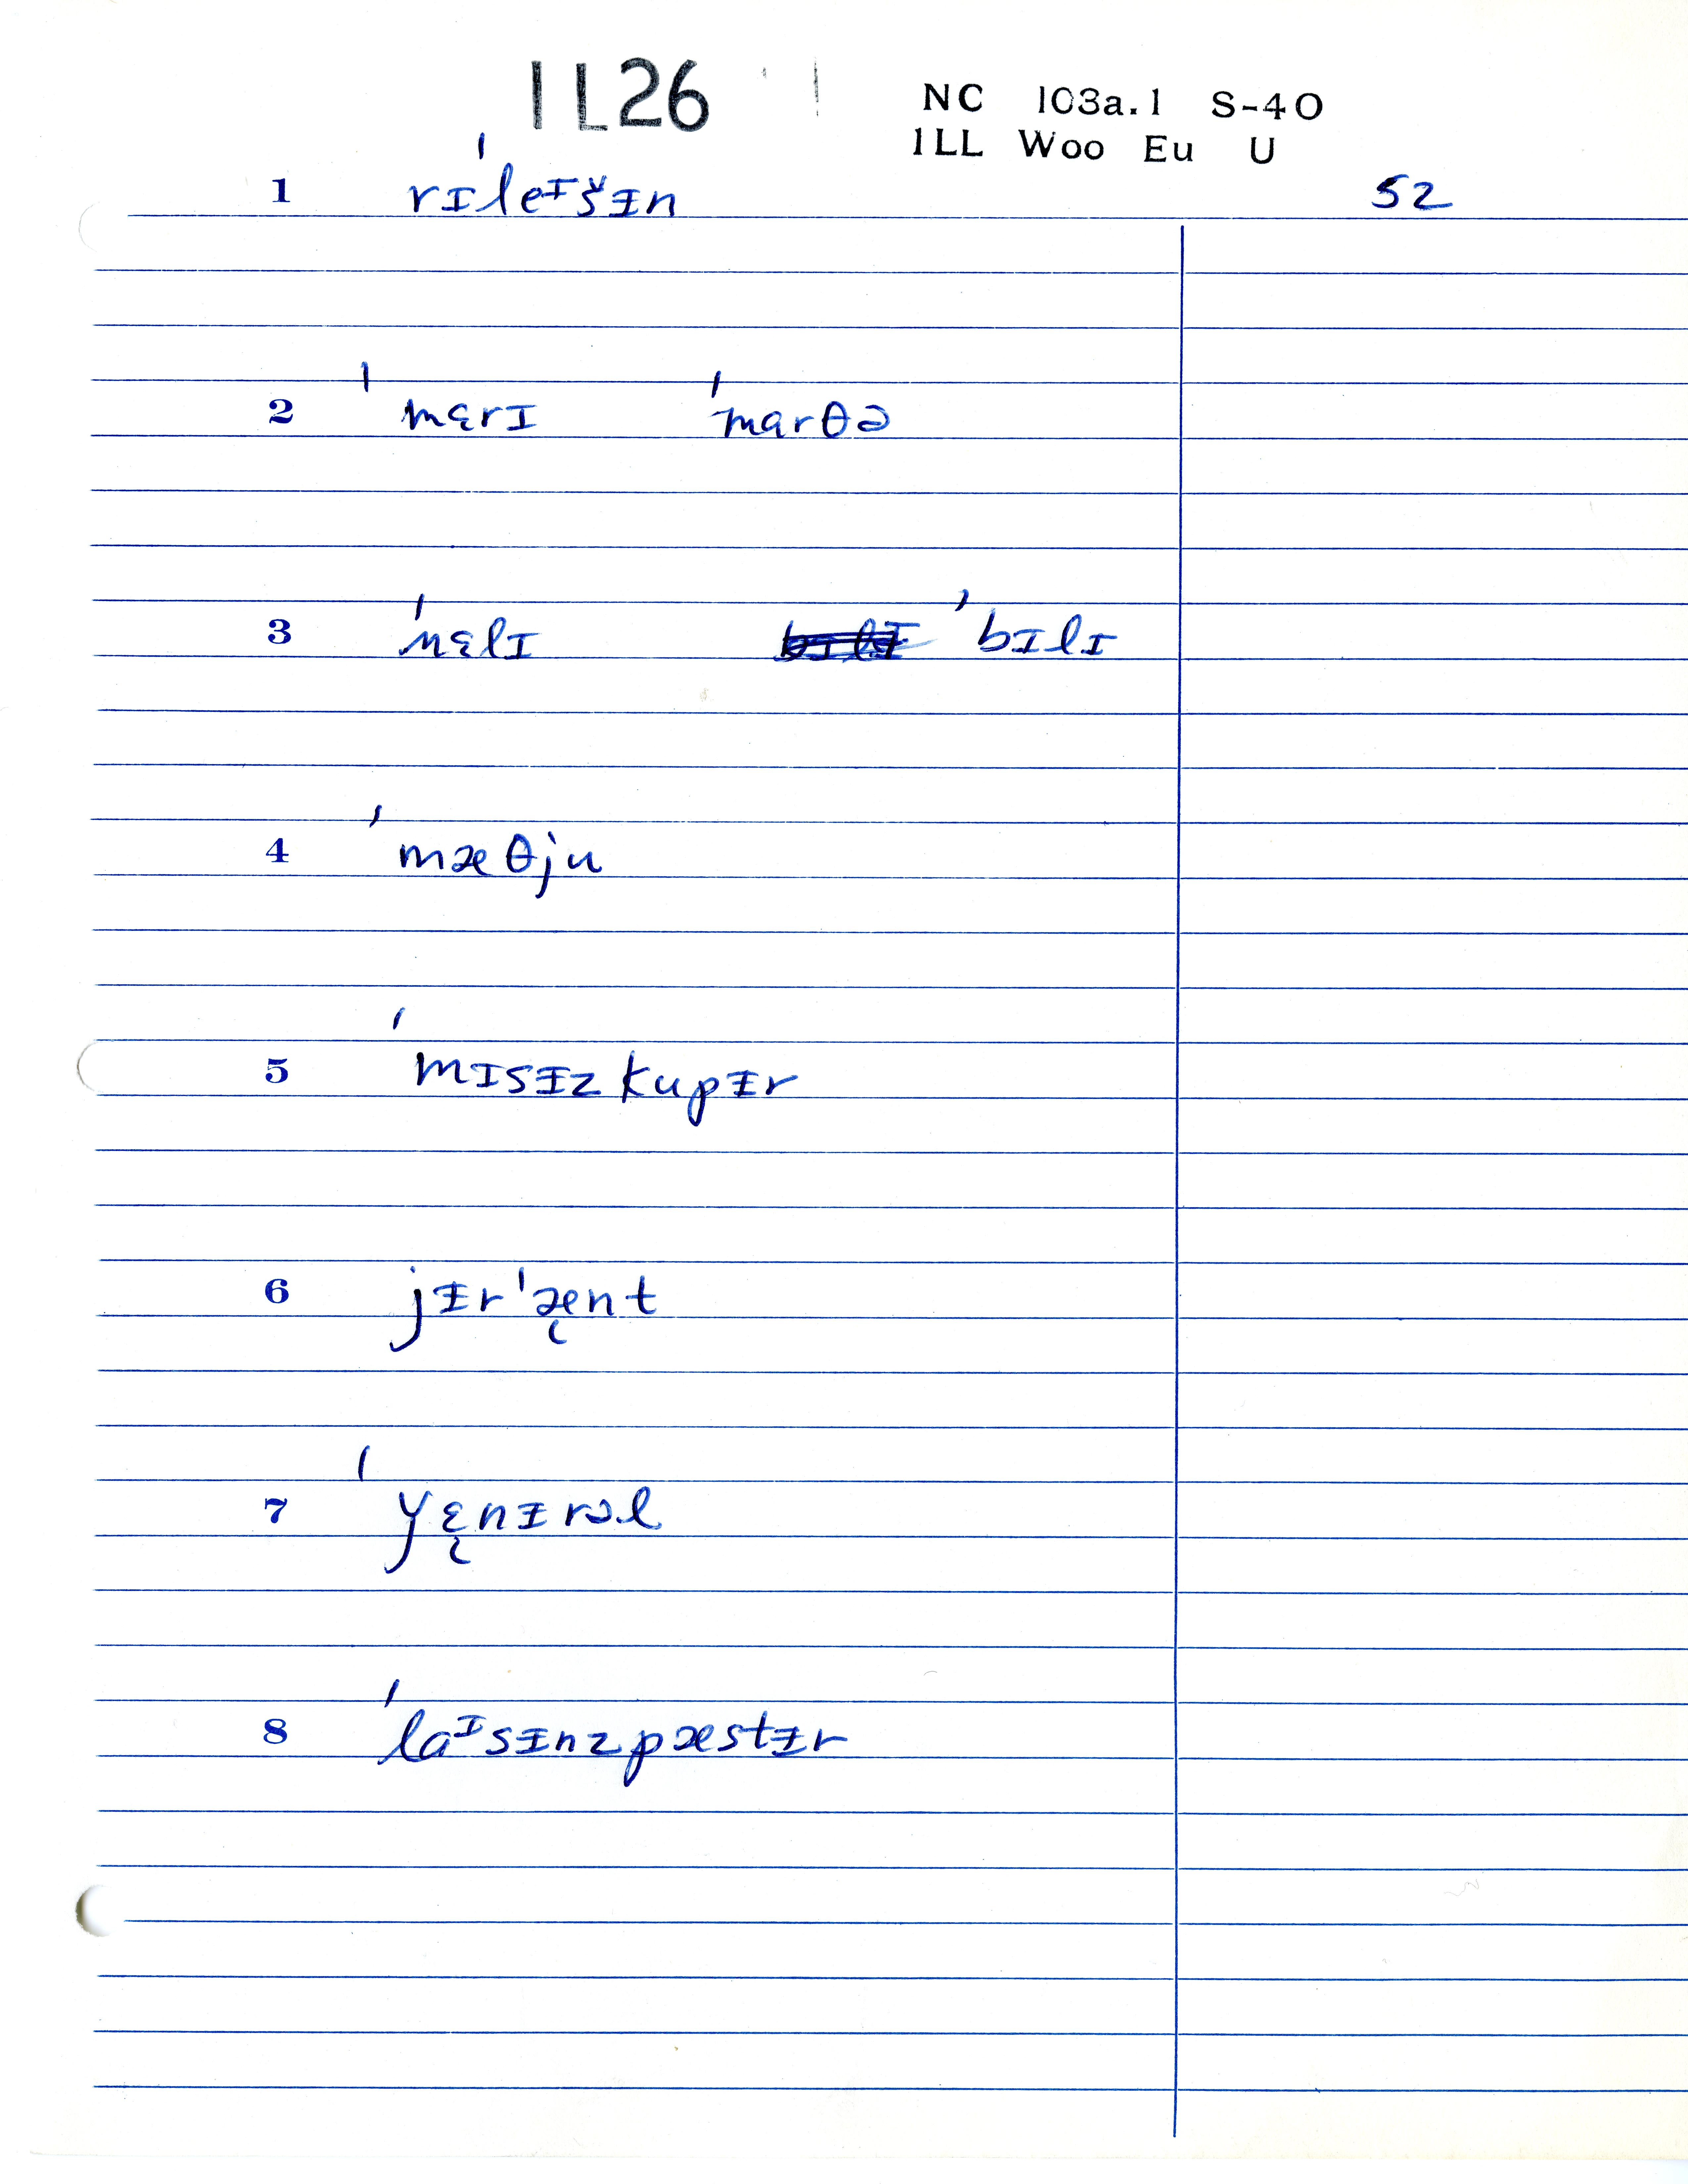 IL26
NC 103a.1 S-40
ILL Woo Eu U
1 rɪˈleᶦšᵻn 52
2 ˈmɛrɪ ˈmarθə
3 ˈnɛlɪ ˈbɪlɪ
4 ˈmæθju
5 ˈmɪsᵻz kupᵻr
6 jᵻrˈæ̨nt
7 ˈyɛ̨nᵻrəl
8 ˈlaᶦsᵻnzpæstᵻr